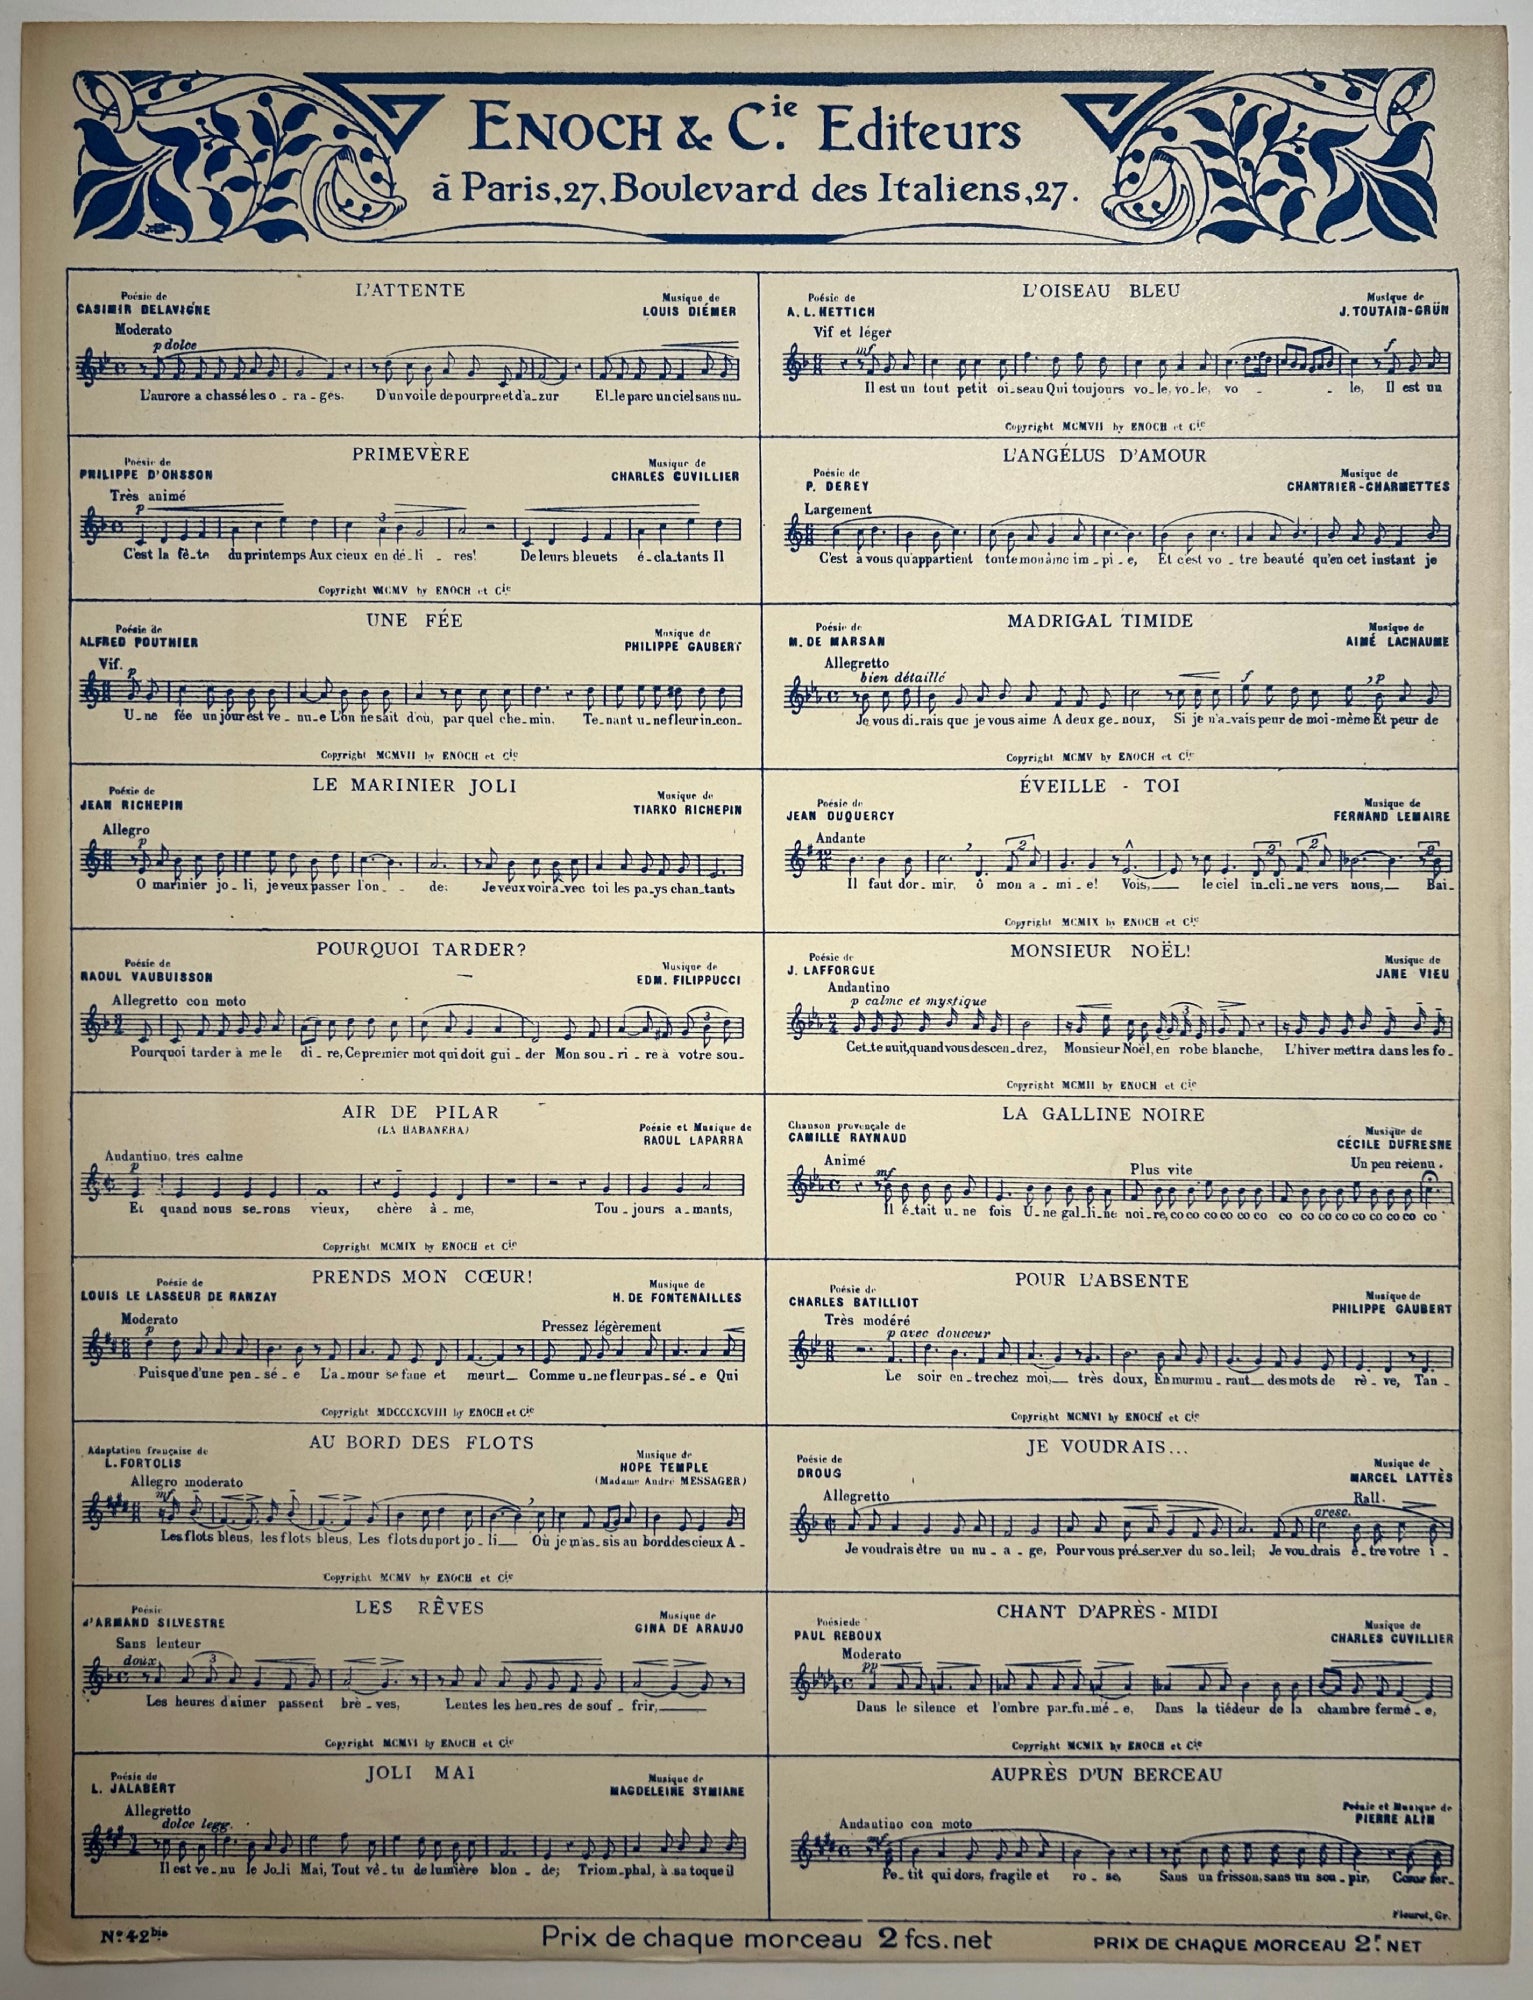 ENOCH & Cie. Editeurs
à Paris, 27, Boulevard des Italiens, 27.
L'ATTENTE
Poésie de
CASIMIR DELAVIGNE
Musique de
LOUIS DIÉMER
Moderato
p dolce
L'aurore a chassé les o - ra - ges. D'un voile de pourpre et d'a - zur El - le pare un ciel sans nu-
L'OISEAU BLEU
Poésie de
A. L. HETTICH
Musique de
J. TOUTAIN-GRÜN
Vif et léger
mf
f
Il est un tout petit oi - seau Qui toujours vo - le, vo - le, vo - - le, Il est un
Copyright MCMVII by ENOCH et Cie
PRIMEVÈRE
Poésie de
PHILIPPE D'OHSSON
Musique de
CHARLES CUVILLIER
Très animé
p
3
C'est la fê - te du printemps Aux cieux en dé - li - res! De leurs bleuets é - cla - tants Il
Copyright MCMV by ENOCH et Cie
L'ANGÉLUS D'AMOUR
Poésie de
P. DEREY
Musique de
CHANTRIER-CHARMETTES
Largement
C'est à vous qu'appartient toute mon âme im - pi - e, Et c'est vo - tre beauté qu'en cet instant je
UNE FÉE
Poésie de
ALFRED POUTHIER
Musique de
PHILIPPE GAUBERT
Vif.
p
U - ne fée un jour est ve - nu - e L'on ne sait d'où, par quel che - min. Te - nant u - ne fleur in - con-
Copyright MCMVII by ENOCH et Cie
MADRIGAL TIMIDE
Poésie de
M. DE MARSAN
Musique de
AIMÉ LACHAUME
Allegretto
bien détaillé
f
p
Je vous di - rais que je vous aime A deux ge - noux, Si je n'a - vais peur de moi - même Et peur de
Copyright MCMV by ENOCH et Cie
LE MARINIER JOLI
Poésie de
JEAN RICHEPIN
Musique de
TIARKO RICHEPIN
Allegro
p
O marinier jo - li, je veux passer l'on - - de: Je veux voir a - vec toi les pa - ys chan - tants
ÉVEILLE - TOI
Poésie de
JEAN OUQUERCY
Musique de
FERNAND LEMAIRE
Andante
2 2 2 2
Il faut dor - mir, ô mon a - mi - e! Vois, le ciel in - cli - ne vers nous, Bai -
Copyright MCMIX by ENOCH et Cie
POURQUOI TARDER?
Poésie de
RAOUL VAUBUISSON
Musique de
EDM. FILIPPUCCI
Allegretto con moto
3
Pourquoi tarder à me le di - re, Ce premier mot qui doit gui - der Mon sou - ri - re à votre sou-
MONSIEUR NOËL!
Poésie de
J. LAFFORGUE
Musique de
JANE VIEU
Andantino
p calme et mystique
3
Cet - te nuit, quand vous descen - drez, Monsieur Noël, en robe blanche, L'hiver mettra dans les fo -
Copyright MCMII by ENOCH et Cie
AIR DE PILAR
(LA HABANERA)
Poésie et Musique de
RAOUL LAPARRA
Andantino, très calme
p
Et quand nous se - rons vieux, chère â - me, Tou - jours a - mants,
Copyright MCMIX by ENOCH et Cie
LA GALLINE NOIRE
Chanson provençale de
CAMILLE RAYNAUD
Musique de
CÉCILE DUFRESNE
Animé
mf
Plus vite
Un peu retenu.
Il é - tait u - ne fois U - ne gal - li - ne noi - re, co co co co co co co co co co co co co co co
PRENDS MON CŒUR!
Poésie de
LOUIS LE LASSEUR DE RANZAY
Musique de
H. DE FONTENAILLES
Moderato
p
Pressez légèrement
Puisque d'une pen - sé - e L'a - mour se fane et meurt Comme u - ne fleur pas - sé - e Qui
Copyright MDCCCXCVIII by ENOCH et Cie
POUR L'ABSENTE
Poésie de
CHARLES BATILLIOT
Musique de
PHILIPPE GAUBERT
Très modéré
p avec douceur
Le soir en - tre chez moi, très doux, En murmu - rant des mots de rê - ve, Tan -
Copyright MCMVI by ENOCH et Cie
AU BORD DES FLOTS
Adaptation française de
L. FORTOLIS
Musique de
HOPE TEMPLE
(Madame André MESSAGER)
Allegro moderato
mf
Les flots bleus, les flots bleus, Les flots du port jo - li Où je m'as - sis au bord des cieux A -
Copyright MCMV by ENOCH et Cie
JE VOUDRAIS...
Poésie de
DROUG
Musique de
MARCEL LATTÈS
Allegretto
Rall.
cresc.
Je voudrais être un nu - a - ge, Pour vous pré - ser - ver du so - leil; Je vou - drais ê - tre votre i -
LES RÊVES
Poésie
d'ARMAND SILVESTRE
Musique de
GINA DE ARAUJO
Sans lenteur
doux
3
Les heures d'aimer passent brè - ves, Lentes les heu - res de souf - frir,
Copyright MCMVI by ENOCH et Cie
CHANT D'APRÈS - MIDI
Poésie de
PAUL REBOUX
Musique de
CHARLES CUVILLIER
Moderato
pp
Dans le silence et l'ombre par - fu - mé - e, Dans la tiédeur de la chambre fermé - e,
Copyright MCMIX by ENOCH et Cie
JOLI MAI
Poésie de
L. JALABERT
Musique de
MAGDELEINE SYMIANE
Allegretto
dolce legg.
Il est ve - nu le Jo - li Mai, Tout vê - tu de lumière blon - de; Triom - phal, à sa toque il
AUPRÈS D'UN BERCEAU
Poésie et Musique de
PIERRE ALIN
Andantino con moto
mf
Pe - tit qui dors, fragile et ro - se, Sans un frisson, sans un sou - pir, Cœur fer -
Fleurot, Gr.
No. 42 bis
Prix de chaque morceau 2 fcs. net
PRIX DE CHAQUE MORCEAU 2 F. NET